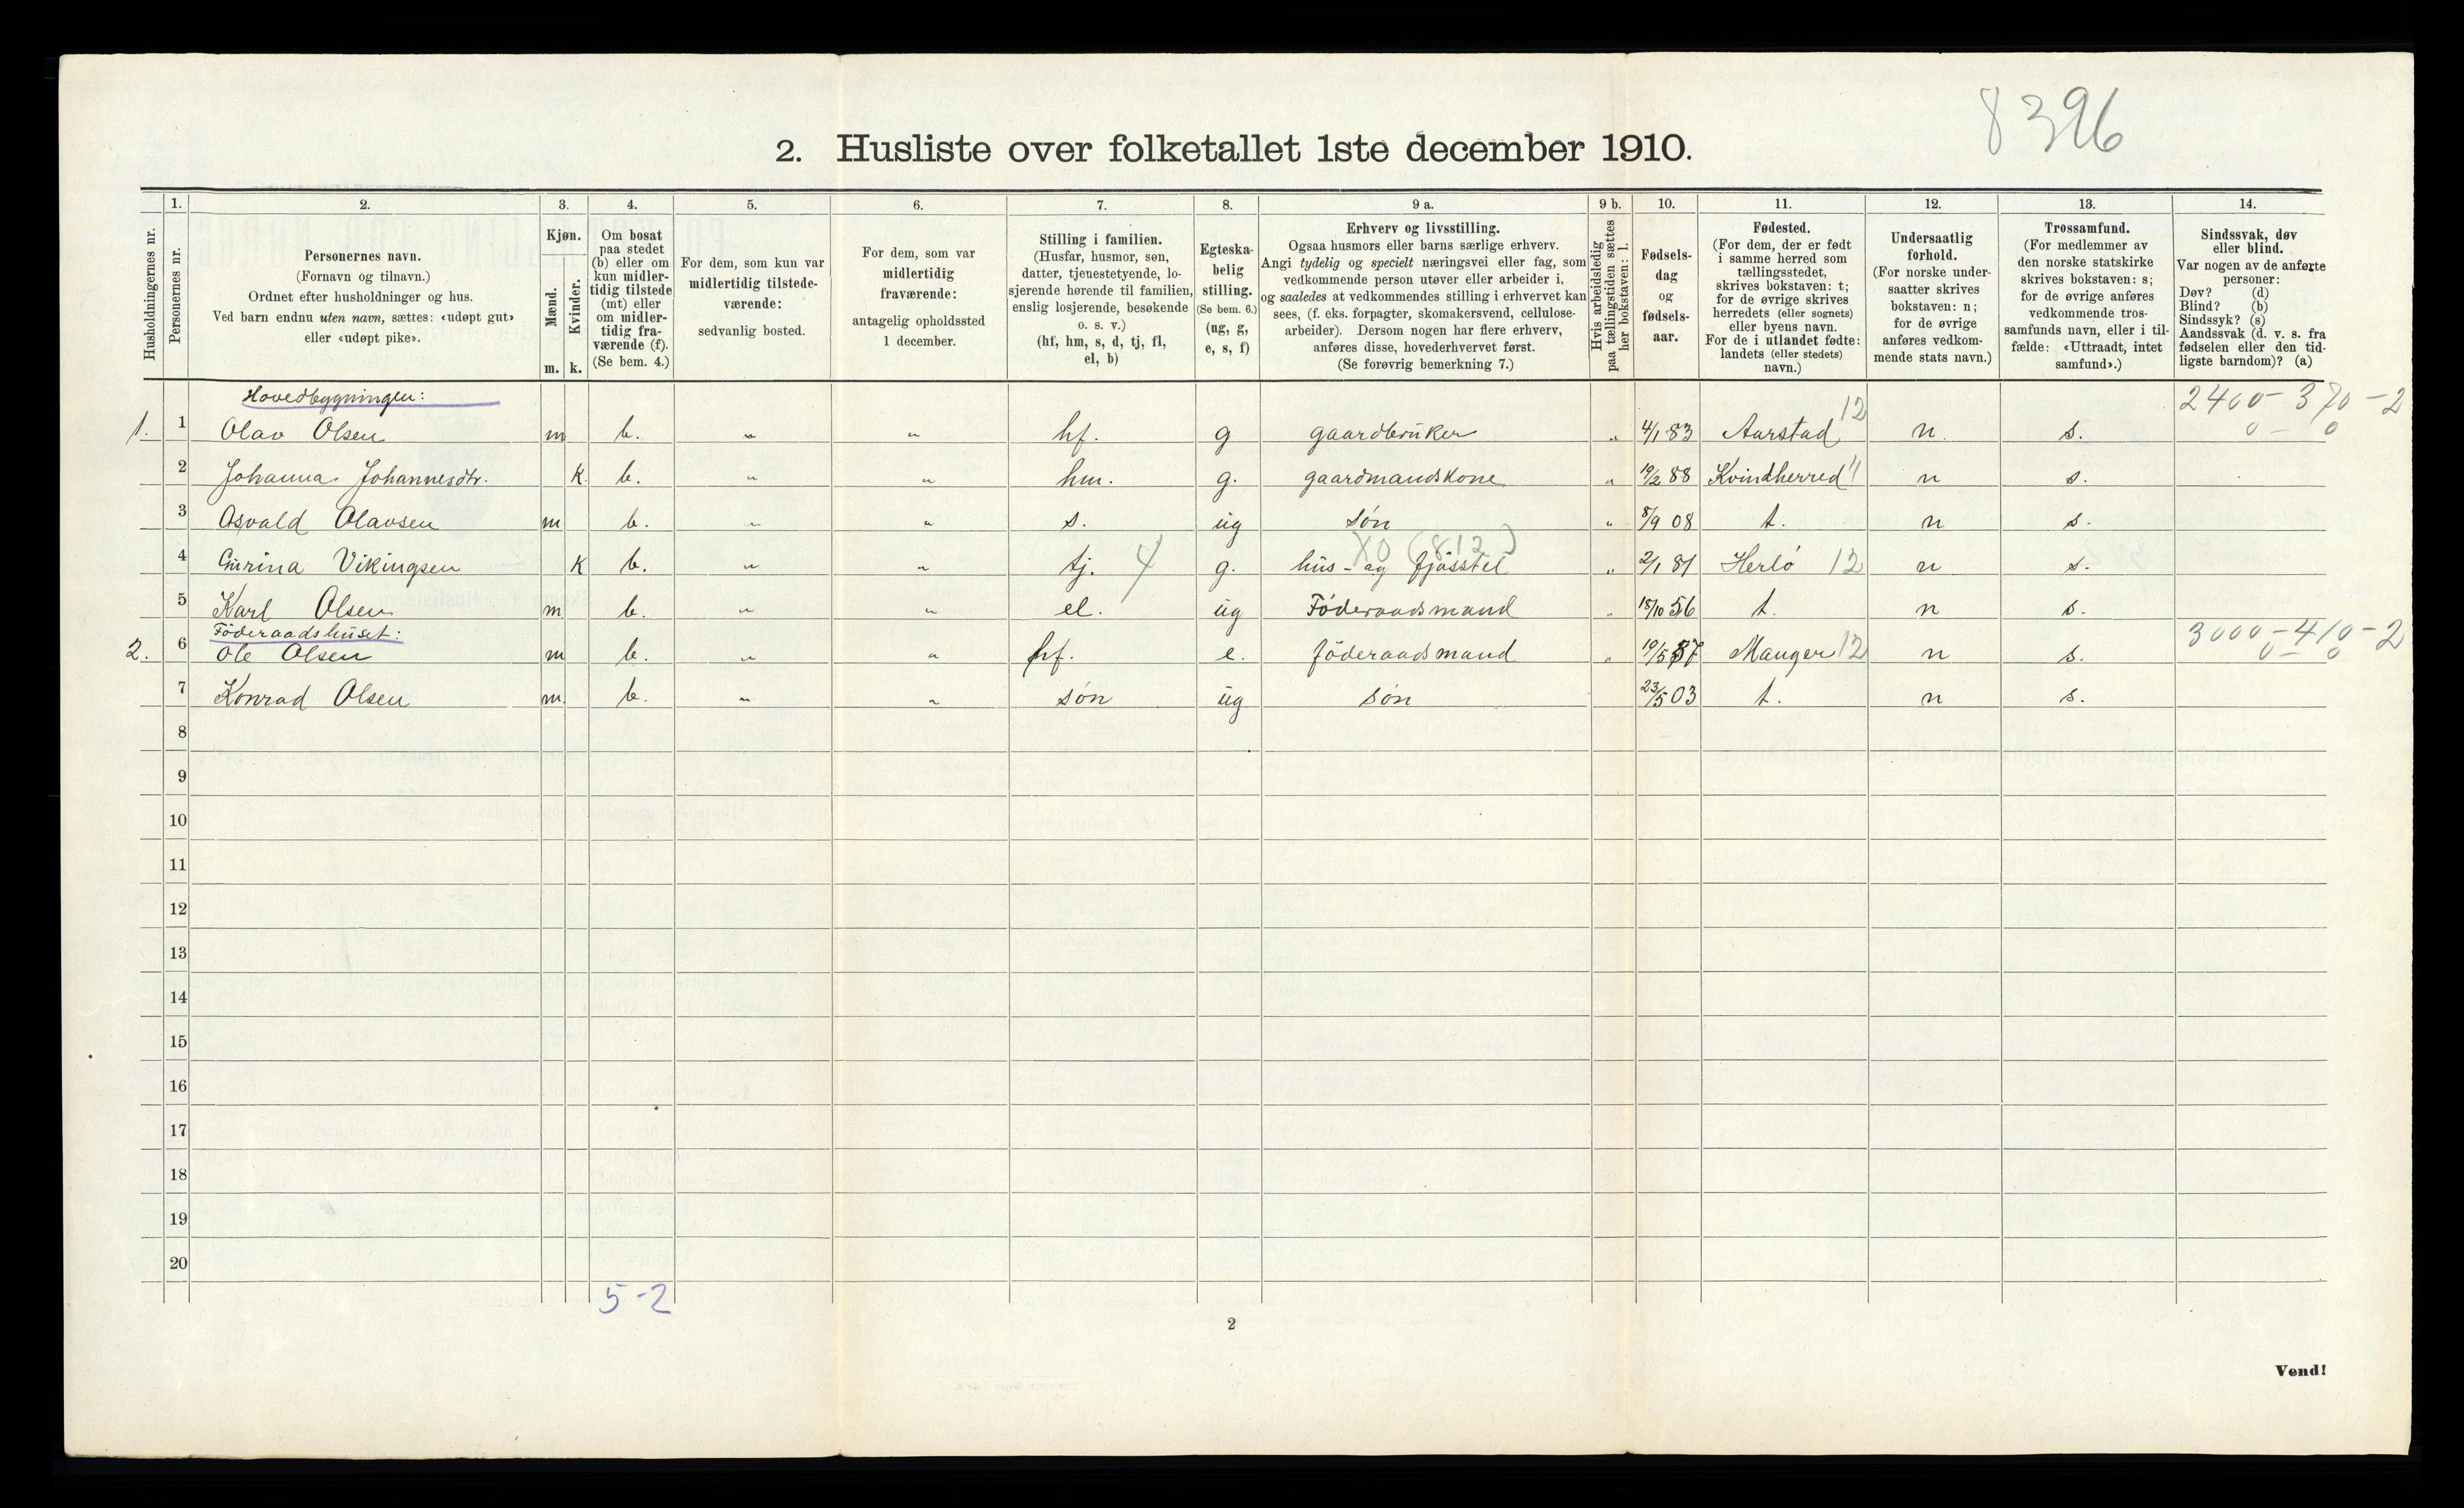 8396
2. Husliste over folketallet 1ste december 1910.
Husholdningernes nr.
1.
Personernes nr.
2.
Personernes navn.
(Fornavn og tilnavn.)
Ordnet efter husholdninger og hus.
Ved barn endnu uten navn, sættes: «udøpt gut»
eller «udøpt pike».
3.
Kjøn.
Mænd.
Kvinder.
m. k.
4.
Om bosat
paa stedet
(b) eller om
kun midler-
tidig tilstede
(mt) eller
om midler-
tidig fra-
værende (f).
(Se bem. 4.)
5.
For dem, som kun var
midlertidig tilstede-
værende:
sedvanlig bosted.
6.
For dem, som var
midlertidig
fraværende:
antagelig opholdssted
1 december.
7.
Stilling i familien.
(Husfar, husmor, søn,
datter, tjenestetyende, lo-
sjerende hørende til familien,
enslig losjerende, besøkende
o. s. v.)
(hf, hm, s, d, tj, fl,
el, b)
8.
Egteska-
belig
stilling.
(Se bem. 6.)
(ug, g,
e, s, f)
9 a.
Erhverv og livsstilling.
Ogsaa husmors eller barns særlige erhverv.
Angi tydelig og specielt næringsvei eller fag, som
vedkommende person utøver eller arbeider i,
og saaledes at vedkommendes stilling i erhvervet kan
sees, (f. eks. forpagter, skomakersvend, cellulose-
arbeider). Dersom nogen har flere erhverv,
anføres disse, hovederhvervet først.
(Se forøvrig bemerkning 7.)
9 b.
Hvis arbeidsledig
paa tællingstiden sættes
her bokstaven: l.
10.
Fødsels-
dag
og
fødsels-
aar.
11.
Fødested.
(For dem, der er født
i samme herred som
tællingsstedet,
skrives bokstaven: t;
for de øvrige skrives
herredets (eller sognets)
eller byens navn.
For de i utlandet fødte:
landets (eller stedets)
navn.)
12.
Undersaatlig
forhold.
(For norske under-
saatter skrives
bokstaven: n;
for de øvrige
anføres vedkom-
mende stats navn.)
13.
Trossamfund.
(For medlemmer av
den norske statskirke
skrives bokstaven: s;
for de øvrige anføres
vedkommende tros-
samfunds navn, eller i til-
fælde: «Uttraadt, intet
samfund».)
14.
Sindssvak, døv
eller blind.
Var nogen av de anførte
personer:
Døv? (d)
Blind? (b)
Sindssyk? (s)
Aandssvak (d. v. s. fra
fødselen eller den tid-
ligste barndom)? (a)
Hovedbygningen:
2400-370-2
0-0
1. 1 Olav Olsen m b. " " hf. g gaardbruker " 4/1 83 Aarstad 12 n. s.
2 Johanna Johannesdtr. k. b. " " hm. g. gaardmandskone " 19/2 88 Kvindherred 11 n s.
3 Osvald Olavsen m b. " " s. ug søn " 8/9 08 t. n s.
XO (812)
4 Gurina Vikingsen K b. " " tj. 4 g. hus- og fjøsstel " 2/1 81 Herlö 12 n s.
5 Karl Olsen m b. " " el. ug Föderaadsmand " 18/10 56 t. n s.
Föderaadshuset:
3000-410-2
0-0
2. 6 Ole Olsen m b. " " hf. e. föderaadsmand " 19/5 57 Manger 12 n s.
7 Konrad Olsen m. b. " " søn ug søn 23/5 03 t. n s.
8
9
10
11
12
13
14
15
16
17
18
19
20
5-2
2
Vend!